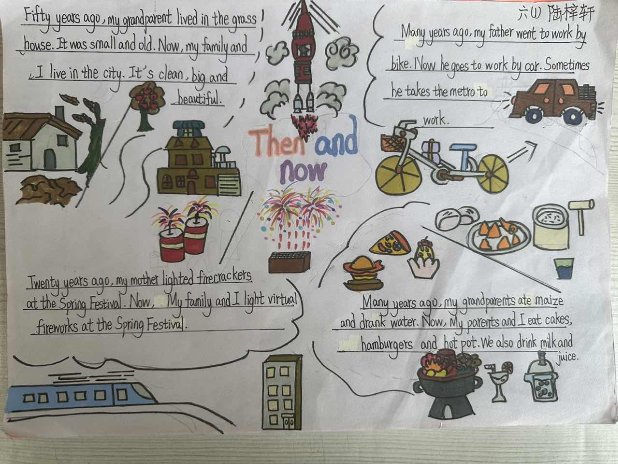 Fifty years ago, my grandparent lived in the grass
house. It was small and old. Now, my family and
I live in the city. It's clean, big and
beautiful.
六(1) 陆梓轩
Many years ago, my father went to work by
bike. Now he goes to work by car. Sometimes
he takes the metro to
work.
Then and
now
Twenty years ago, my mother lighted firecrackers
at the Spring Festival. Now, My family and I light virtual
fireworks at the Spring Festival.
Many years ago, my grandparents ate maize
and drank water. Now, My parents and I eat cakes,
hamburgers and hot pot. We also drink milk and
juice.